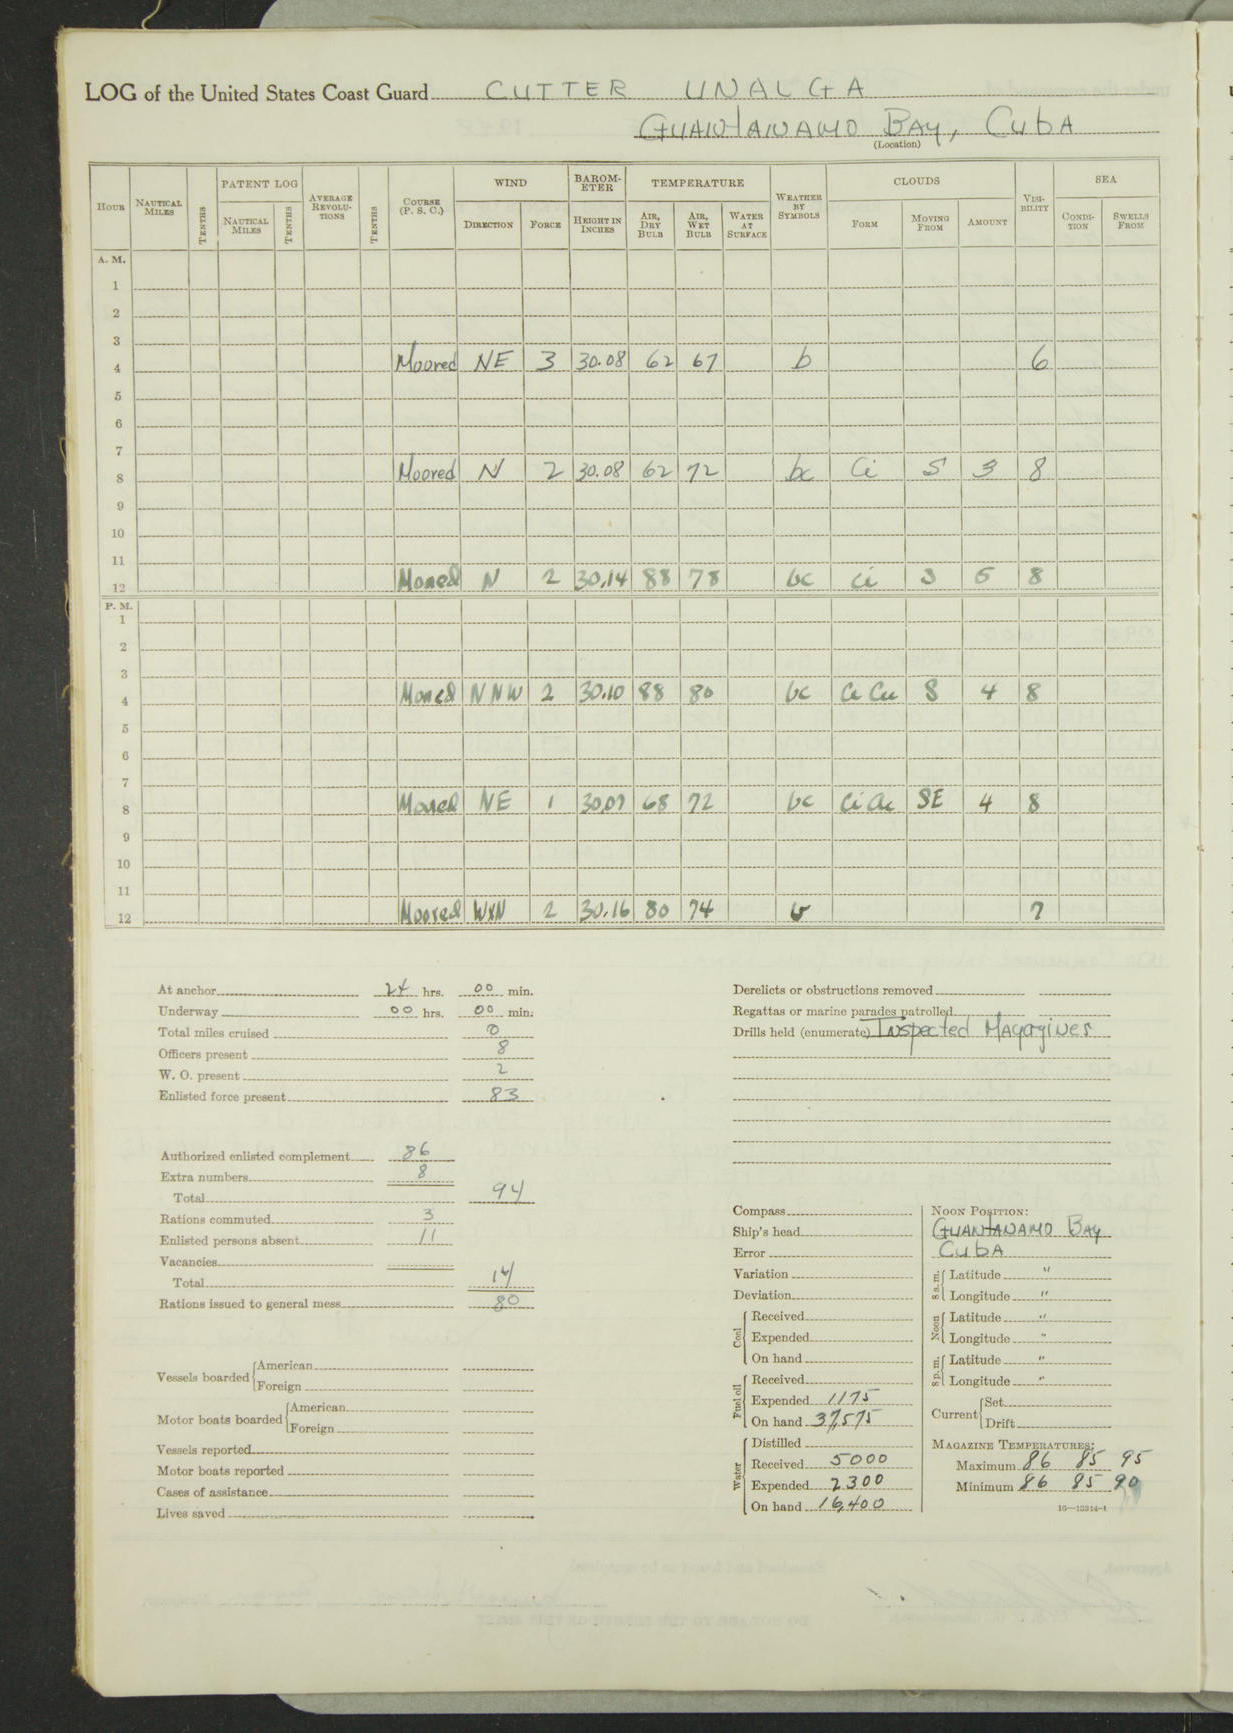 LOG of the United States Coast Guard CUTTER UNALGA
GUANTANAMO BAY, CUBA
(Location)
HOUR NAUTICAL MILES TENTHS PATENT LOG NAUTICAL MILES TENTHS AVERAGE REVOLUTIONS TENTHS COURSE (P. S. C.) WIND DIRECTION FORCE BAROMETER HEIGHT IN INCHES TEMPERATURE AIR, DRY BULB AIR, WET BULB WATER AT SURFACE WEATHER BY SYMBOLS CLOUDS FORM MOVING FROM AMOUNT VISIBILITY SEA CONDITION SWELLS FROM
A. M.
1
2
3
4 Moored NE 3 30.08 62 67 b 6
5
6
7
8 Moored N 2 30.08 62 72 bc Ci S 3 8
9
10
11
12 Moored N 2 30.14 88 78 bc Ci S 5 8
P. M.
1
2
3
4 Moored NNW 2 30.10 88 80 bc Ci Cu S 4 8
5
6
7
8 Moored NE 1 30.07 68 72 bc SE 4 8
9
10
11
12 Moored WxN 2 30.16 80 74 b 7
At anchor 24 hrs. 00 min.
Underway 00 hrs. 00 min.
Total miles cruised 0
Officers present 8
W. O. present 2
Enlisted force present 83
Authorized enlisted complement 86
Extra numbers 8
Total 94
Rations commuted 3
Enlisted persons absent 11
Vacancies
Total 14
Rations issued to general mess 80
Vessels boarded American
Foreign
Motor boats boarded American
Foreign
Vessels reported
Motor boats reported
Cases of assistance
Lives saved
Derelicts or obstructions removed
Regattas or marine parades patrolled
Drills held (enumerate) Inspected Magazines
Compass
Ship's head
Error
Variation
Deviation
Coal Received
Expended
On hand
Fuel oil Received
Expended 1175
On hand 37,575
Water Distilled
Received 5000
Expended 2300
On hand 16,400
NOON POSITION:
GUANTANAMO BAY
CUBA
8 a. m. Latitude "
Longitude "
Noon Latitude "
Longitude "
8 p. m. Latitude "
Longitude "
Current Set
Drift
MAGAZINE TEMPERATURES:
Maximum 86 85 95
Minimum 86 85 90
16—13314-1